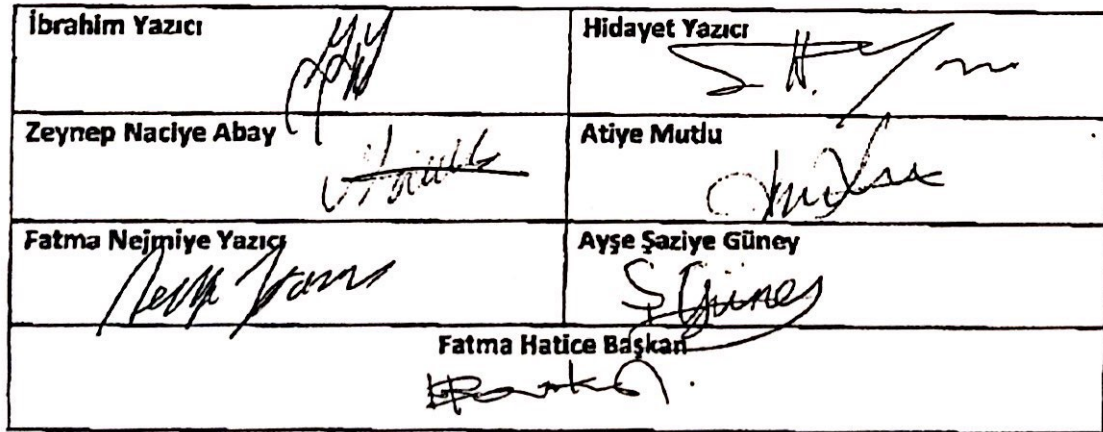 İbrahim Yazıcı
Hidayet Yazıcı
Zeynep Naciye Abay
Atiye Mutlu
Fatma Nejmiye Yazıcı
Ayşe Şaziye Güney
Ş. Güney
Fatma Hatice Başkan